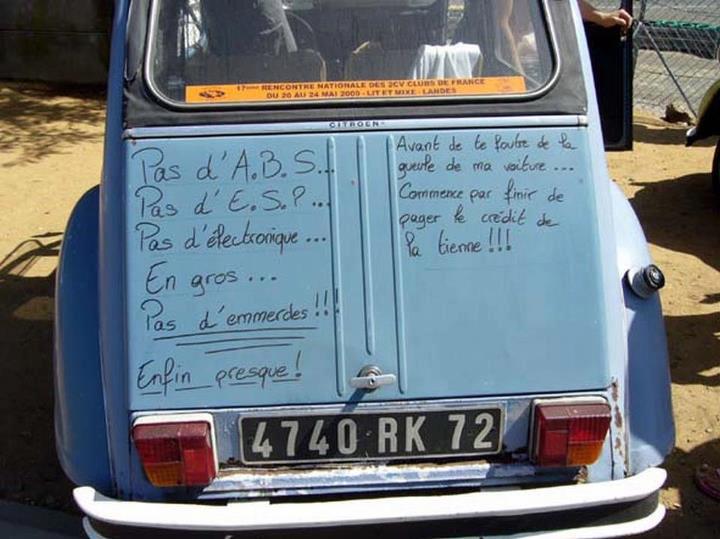 17ème RENCONTRE NATIONALE DES 2CV CLUBS DE FRANCE
DU 20 AU 24 MAI 2009 - LIT ET MIXE - LANDES
CITROËN
Pas d'A.B.S...
Pas d'E.S.P...
Pas d'électronique...
En gros...
Pas d'emmerdes!!!
Enfin presque!
Avant de te foutre de la
gueule de ma voiture...
Commence par finir de
payer le crédit de
la tienne!!!
4740 RK 72